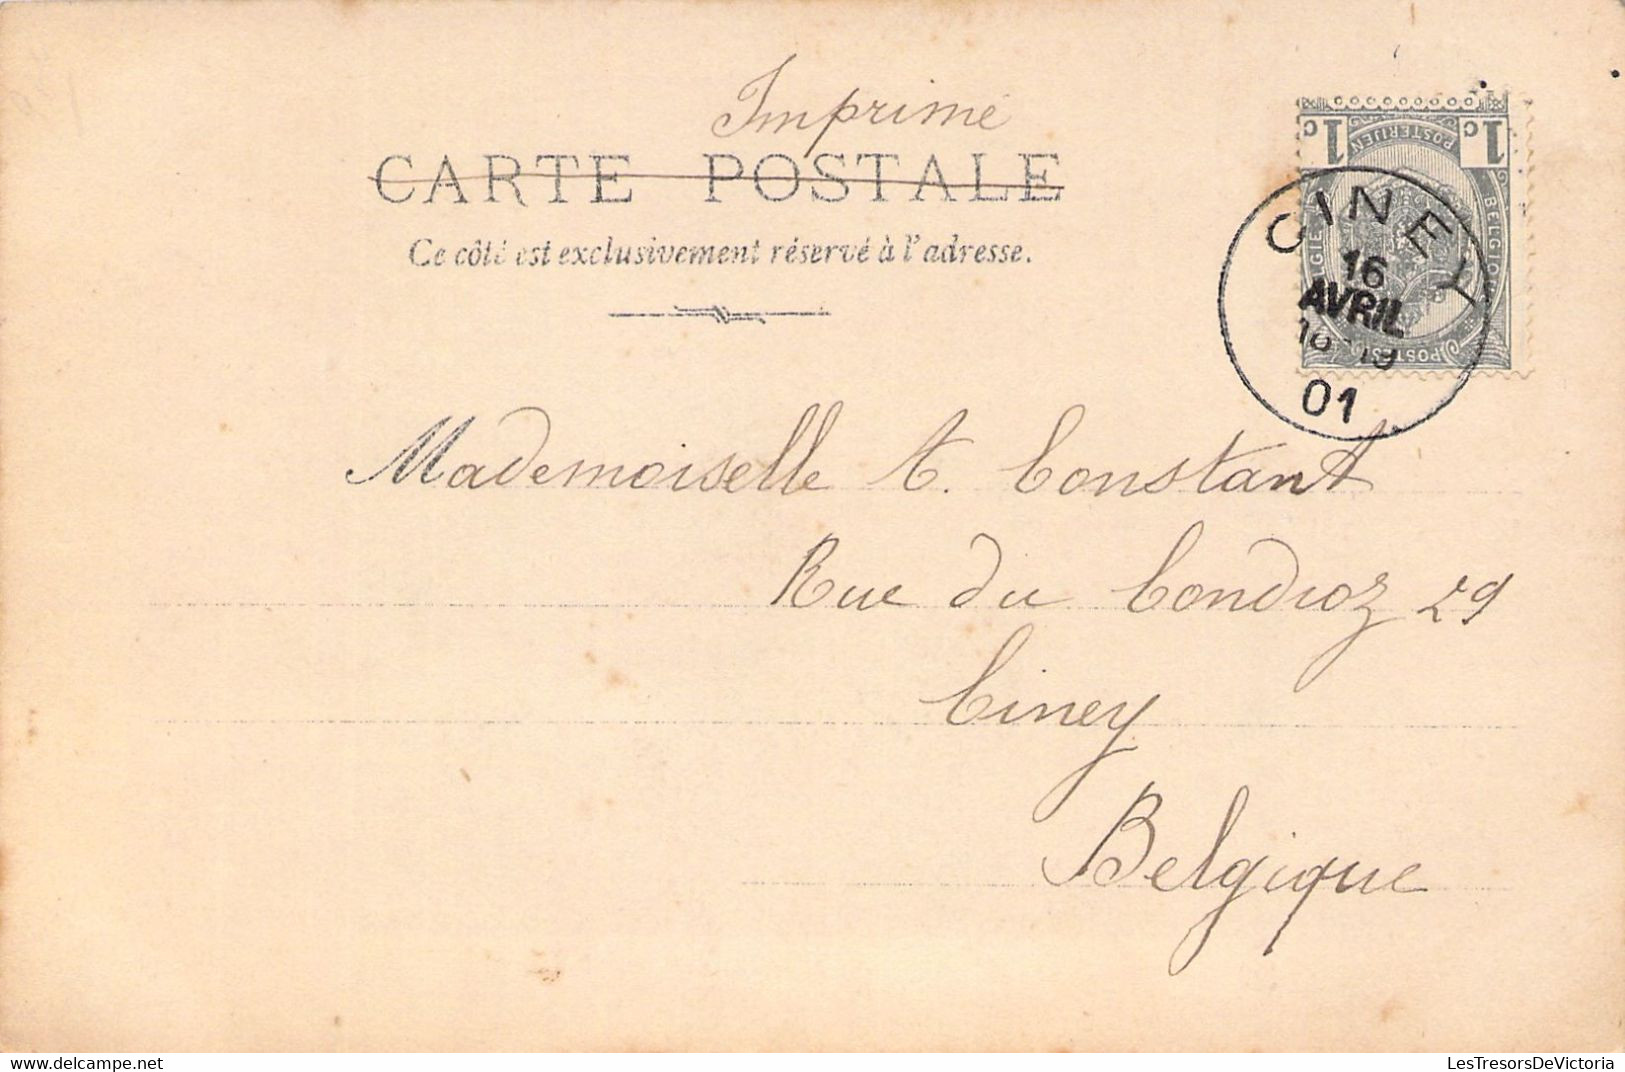 Imprimé
CARTE POSTALE
Ce côté est exclusivement réservé à l'adresse.
1c 1c
POSTERIJEN
BELGIQUE BELGIE
POSTES
CINEY
16
AVRIL
18-19
01
Mademoiselle A. Constant
Rue du Condroz 29
Ciney
Belgique
LesTresorsDeVictoria